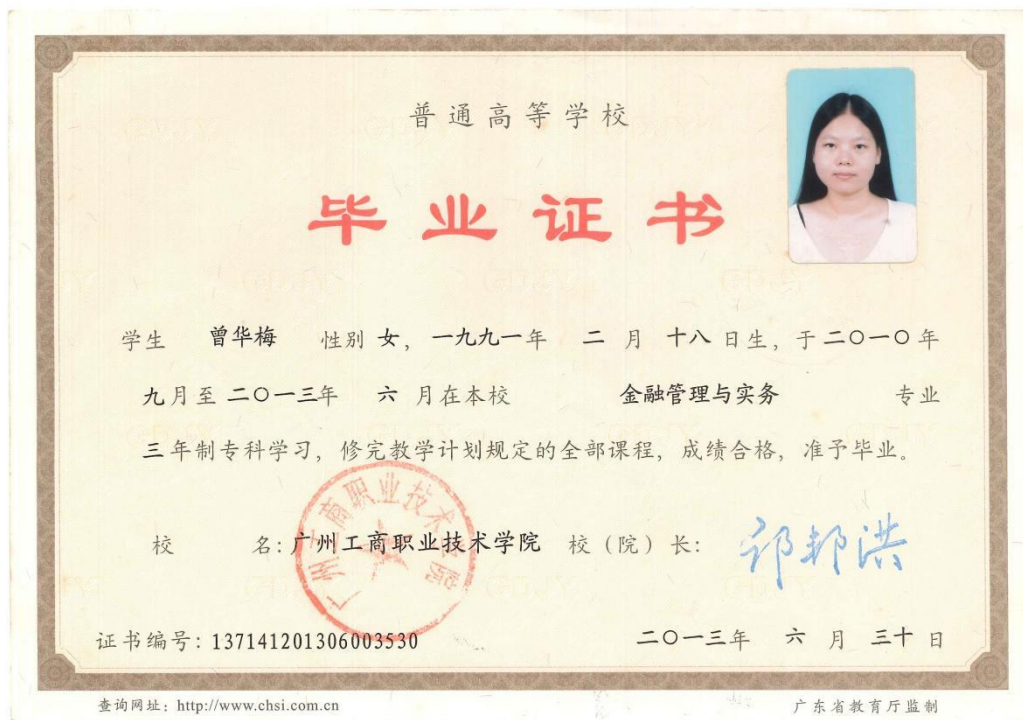 普通高等学校
毕业证书
学生 曾华梅 性别 女，一九九一年 二 月 十八 日生，于 二〇一〇年
九月至 二〇一三年 六 月在本校 金融管理与实务 专业
三年制专科学习，修完教学计划规定的全部课程，成绩合格，准予毕业。
广州工商职业技术学院
校 名：广州工商职业技术学院 校（院）长：邝邦洪
证书编号：137141201306003530 二〇一三年 六 月 三十 日
查询网址：http://www.chsi.com.cn 广东省教育厅监制